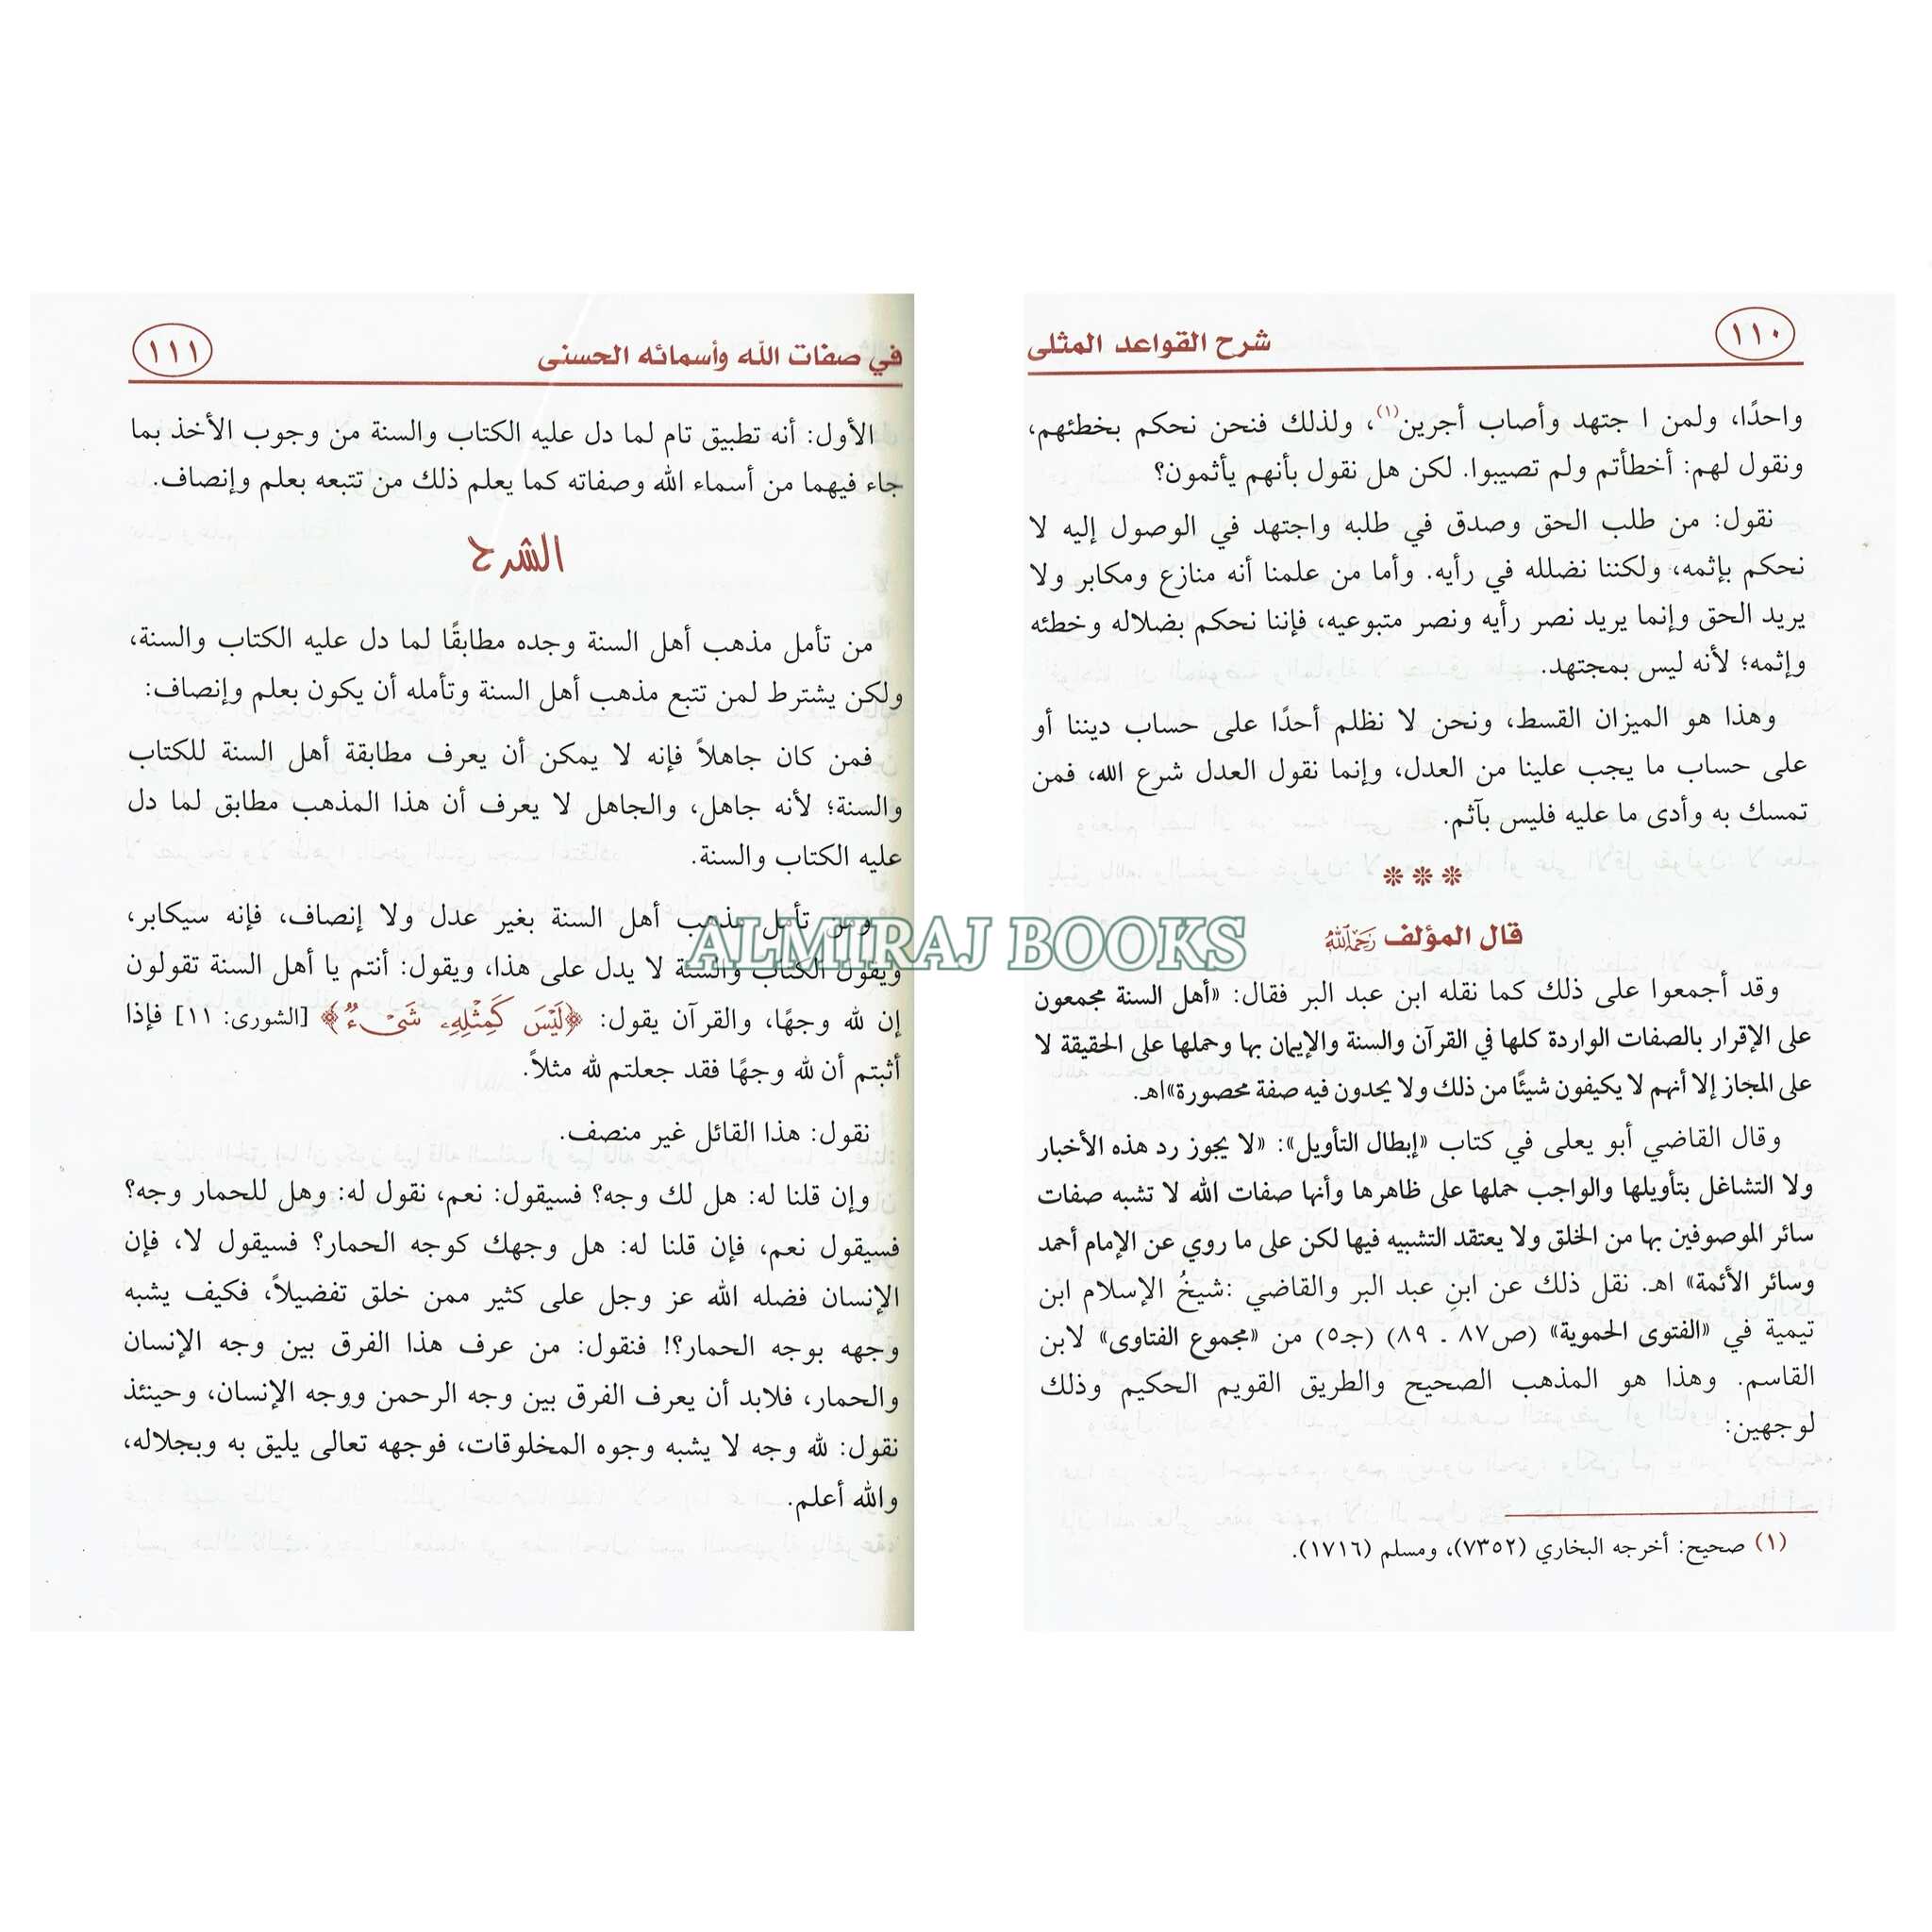 ١١٠
شرح القواعد المثلى
واحدًا، ولمن ا جتهد وأصاب أجرين(١)، ولذلك فنحن نحكم بخطئهم،
ونقول لهم: أخطأتم ولم تصيبوا. لكن هل نقول بأنهم يأثمون؟
نقول: من طلب الحق وصدق في طلبه واجتهد في الوصول إليه لا
نحكم بإثمه، ولكننا نضلله في رأيه. وأما من علمنا أنه منازع ومكابر ولا
يريد الحق وإنما يريد نصر رأيه ونصر متبوعيه، فإننا نحكم بضلاله وخطئه
وإثمه؛ لأنه ليس بمجتهد.
وهذا هو الميزان القسط، ونحن لا نظلم أحدًا على حساب ديننا أو
على حساب ما يجب علينا من العدل، وإنما نقول العدل شرع الله، فمن
تمسك به وأدى ما عليه فليس بآثم.
❊ ❊ ❊
قال المؤلف رَحِمَهُ ٱللَّهُ
وقد أجمعوا على ذلك كما نقله ابن عبد البر فقال: «أهل السنة مجمعون
على الإقرار بالصفات الواردة كلها في القرآن والسنة والإيمان بها وحملها على الحقيقة لا
على المجاز إلا أنهم لا يكيفون شيئًا من ذلك ولا يحدون فيه صفة محصورة»اهـ.
وقال القاضي أبو يعلى في كتاب «إبطال التأويل»: «لا يجوز رد هذه الأخبار
ولا التشاغل بتأويلها والواجب حملها على ظاهرها وأنها صفات الله لا تشبه صفات
سائر الموصوفين بها من الخلق ولا يعتقد التشبيه فيها لكن على ما روي عن الإمام أحمد
وسائر الأئمة» اهـ. نقل ذلك عن ابنِ عبد البر والقاضي :شيخُ الإسلام ابن
تيمية في «الفتوى الحموية» (ص٨٧ ـ ٨٩) (جـ٥) من «مجموع الفتاوى» لابن
القاسم. وهذا هو المذهب الصحيح والطريق القويم الحكيم وذلك
لوجهين:
(١) صحيح: أخرجه البخاري (٧٣٥٢)، ومسلم (١٧١٦).
في صفات الله وأسمائه الحسنى
١١١
الأول: أنه تطبيق تام لما دل عليه الكتاب والسنة من وجوب الأخذ بما
جاء فيهما من أسماء الله وصفاته كما يعلم ذلك من تتبعه بعلم وإنصاف.
الشرح
من تأمل مذهب أهل السنة وجده مطابقًا لما دل عليه الكتاب والسنة،
ولكن يشترط لمن تتبع مذهب أهل السنة وتأمله أن يكون بعلم وإنصاف:
فمن كان جاهلاً فإنه لا يمكن أن يعرف مطابقة أهل السنة للكتاب
والسنة؛ لأنه جاهل، والجاهل لا يعرف أن هذا المذهب مطابق لما دل
عليه الكتاب والسنة.
ومن تأمل مذهب أهل السنة بغير عدل ولا إنصاف، فإنه سيكابر،
ويقول الكتاب والسنة لا يدل على هذا، ويقول: أنتم يا أهل السنة تقولون
إن لله وجهًا، والقرآن يقول: ﴿لَيْسَ كَمِثْلِهِۦ شَىْءٌ﴾ [الشورى: ١١] فإذا
أثبتم أن لله وجهًا فقد جعلتم لله مثلاً.
نقول: هذا القائل غير منصف.
وإن قلنا له: هل لك وجه؟ فسيقول: نعم، نقول له: وهل للحمار وجه؟
فسيقول نعم، فإن قلنا له: هل وجهك كوجه الحمار؟ فسيقول لا، فإن
الإنسان فضله الله عز وجل على كثير ممن خلق تفضيلاً، فكيف يشبه
وجهه بوجه الحمار؟! فنقول: من عرف هذا الفرق بين وجه الإنسان
والحمار، فلابد أن يعرف الفرق بين وجه الرحمن ووجه الإنسان، وحينئذ
نقول: لله وجه لا يشبه وجوه المخلوقات، فوجهه تعالى يليق به وبجلاله،
والله أعلم.
ALMIRAJ BOOKS